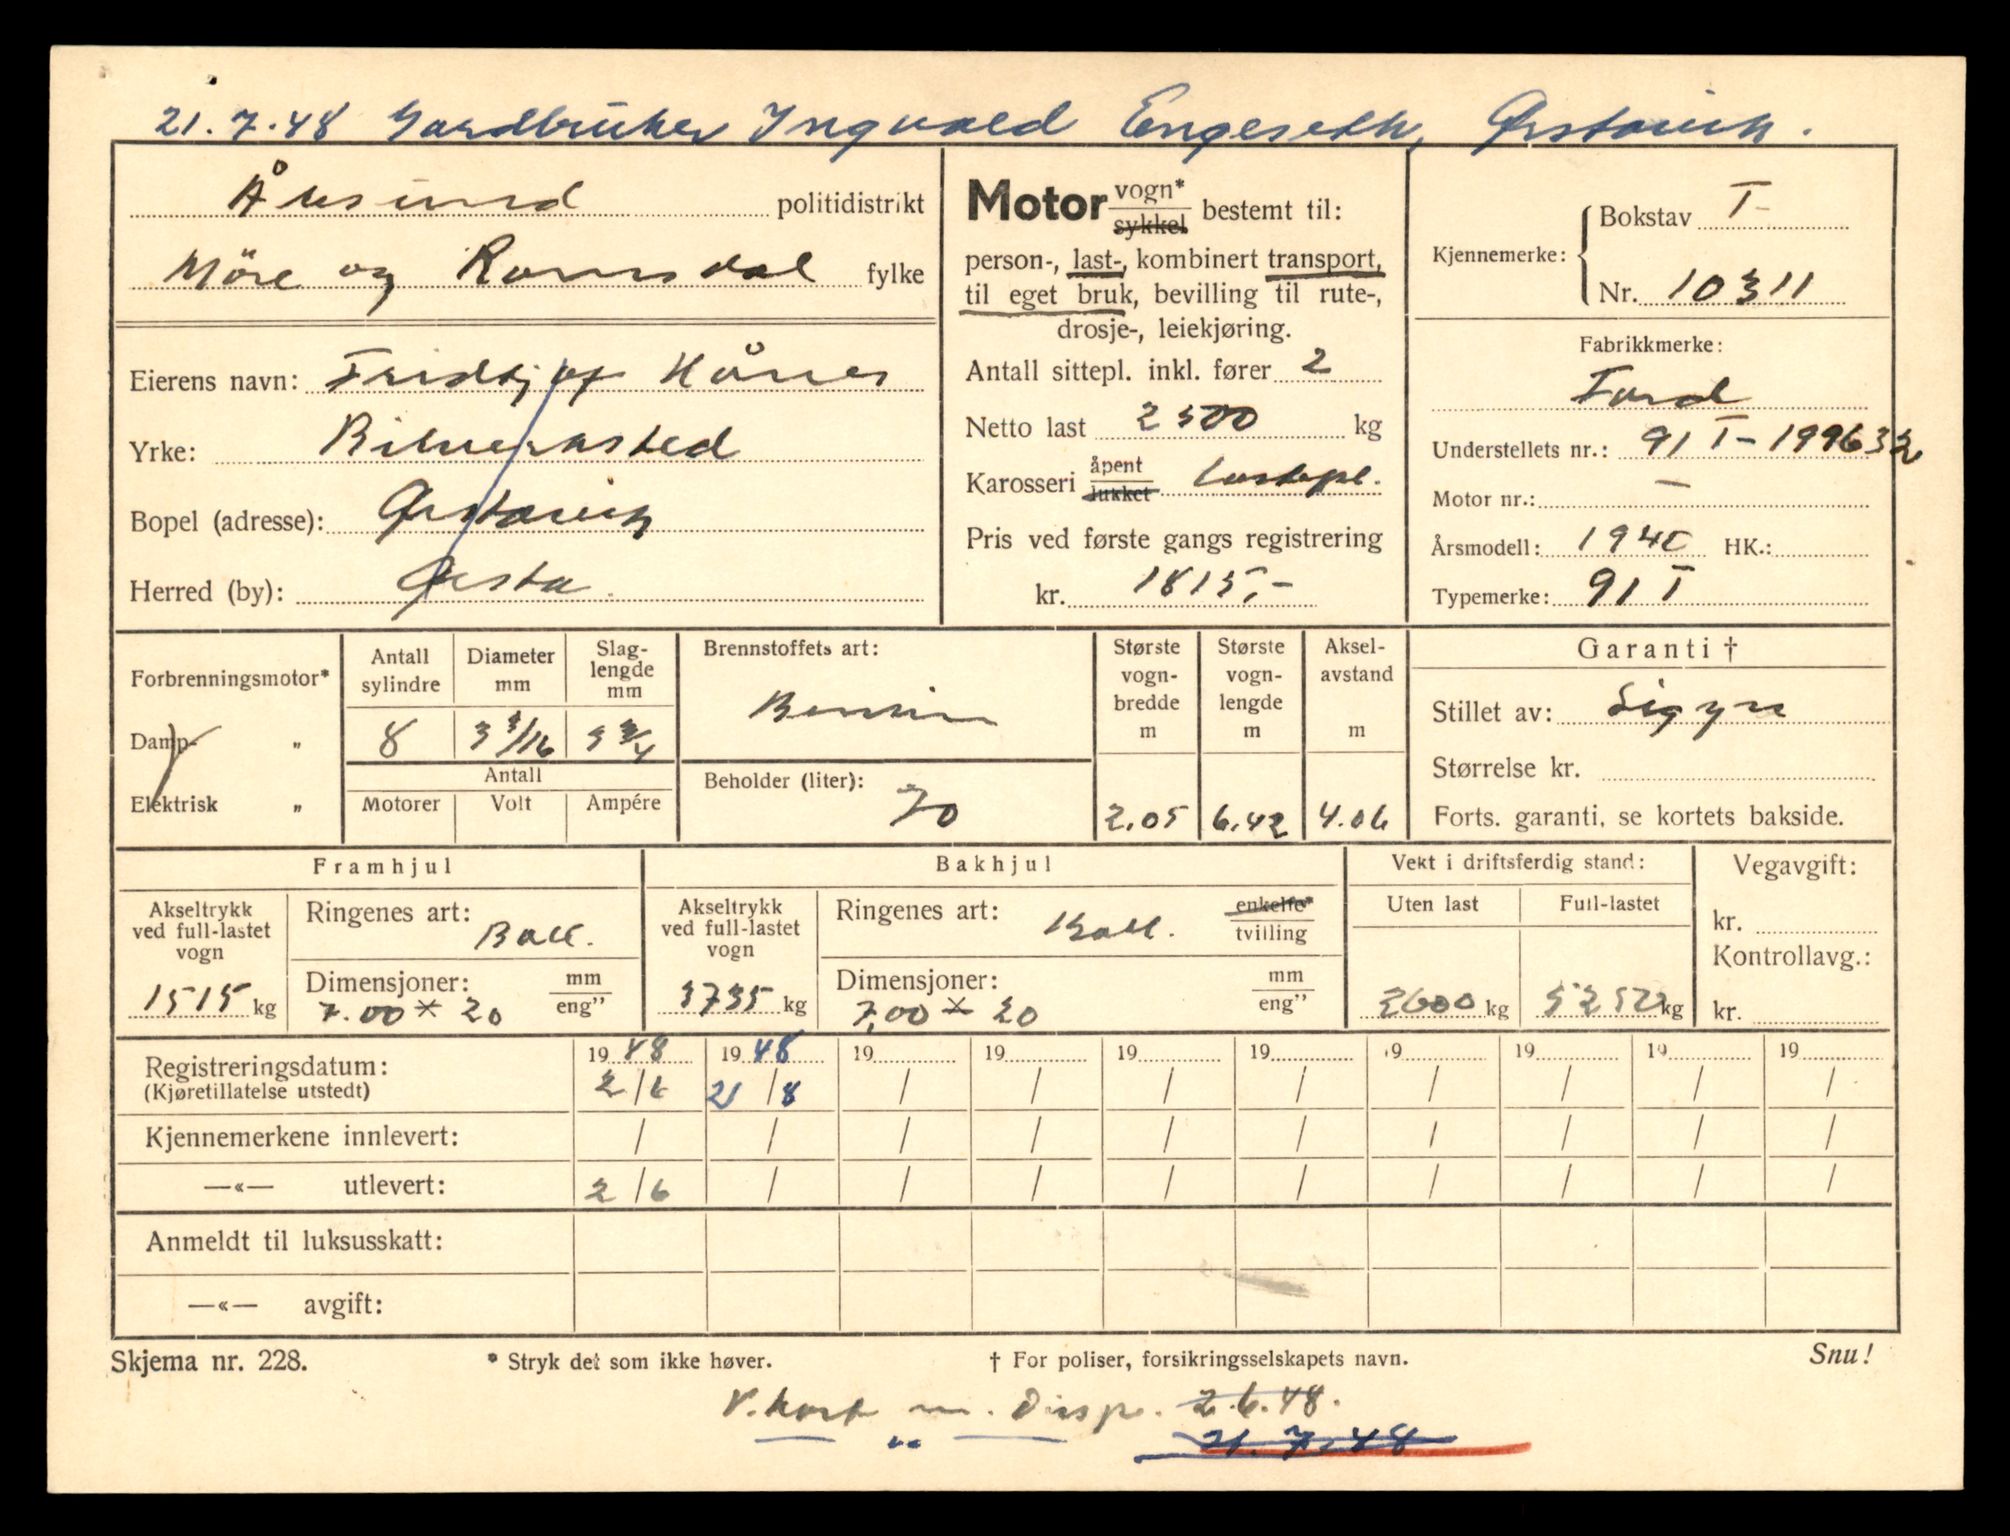 21.7.48 Gardbruker Ingvald Engeseth, Ørstavik.
Ålesund politidistrikt
Möre og Romsdal fylke
Eierens navn: Fridtjof Hånes
Yrke: Bilverksted
Bopel (adresse): Ørstavik
Herred (by): Ørsta.
Motor vogn* sykkel bestemt til:
person-, last-, kombinert transport,
til eget bruk, bevilling til rute-,
drosje-, leiekjøring.
Antall sittepl. inkl. fører 2
Netto last 2500 kg
Karosseri åpent lukket Lastepl.
Pris ved første gangs registrering
kr. 1815,-
Kjennemerke: Bokstav T-
Nr. 10311
Fabrikkmerke:
Ford
Understellets nr.: 91 T-199632
Motor nr.: —
Årsmodell: 1940 HK.:
Typemerke: 91 T
Forbrenningsmotor*
Damp- „
Elektrisk „
Antall sylindre
8
Diameter mm
3 3/16
Slag-lengde mm
3 3/4
Antall
Motorer Volt Ampére
Brennstoffets art:
Bensin
Beholder (liter):
70
Største vogn-bredde m
2.05
Største vogn-lengde m
6.42
Aksel-avstand m
4.06
Garanti †
Stillet av: Sigyn
Størrelse kr.
Forts. garanti, se kortets bakside.
Framhjul
Akseltrykk ved full-lastet vogn
1515 kg
Ringenes art: Ball.
Dimensjoner: mm eng"
7.00 x 20
Bakhjul
Akseltrykk ved full-lastet vogn
3735 kg
Ringenes art: Ball. enkelte* tvilling
Dimensjoner: mm eng"
7.00 x 20
Vekt i driftsferdig stand:
Uten last Full-lastet
2600 kg 5250 kg
Vegavgift:
kr.
Kontrollavg.:
kr.
Registreringsdatum: 1948 1948 19 19 19 19 19 19 19 19
(Kjøretillatelse utstedt) 2/6 21/8 / / / / / / / /
Kjennemerkene innlevert: / / / / / / / / / /
—«— utlevert: 2/6 / / / / / / / / /
Anmeldt til luksusskatt:
—«— avgift:
Skjema nr. 228. * Stryk det som ikke høver. † For poliser, forsikringsselskapets navn. Snu!
V.kort m. Disp. 2.6.48.
— „ — 21.7.48